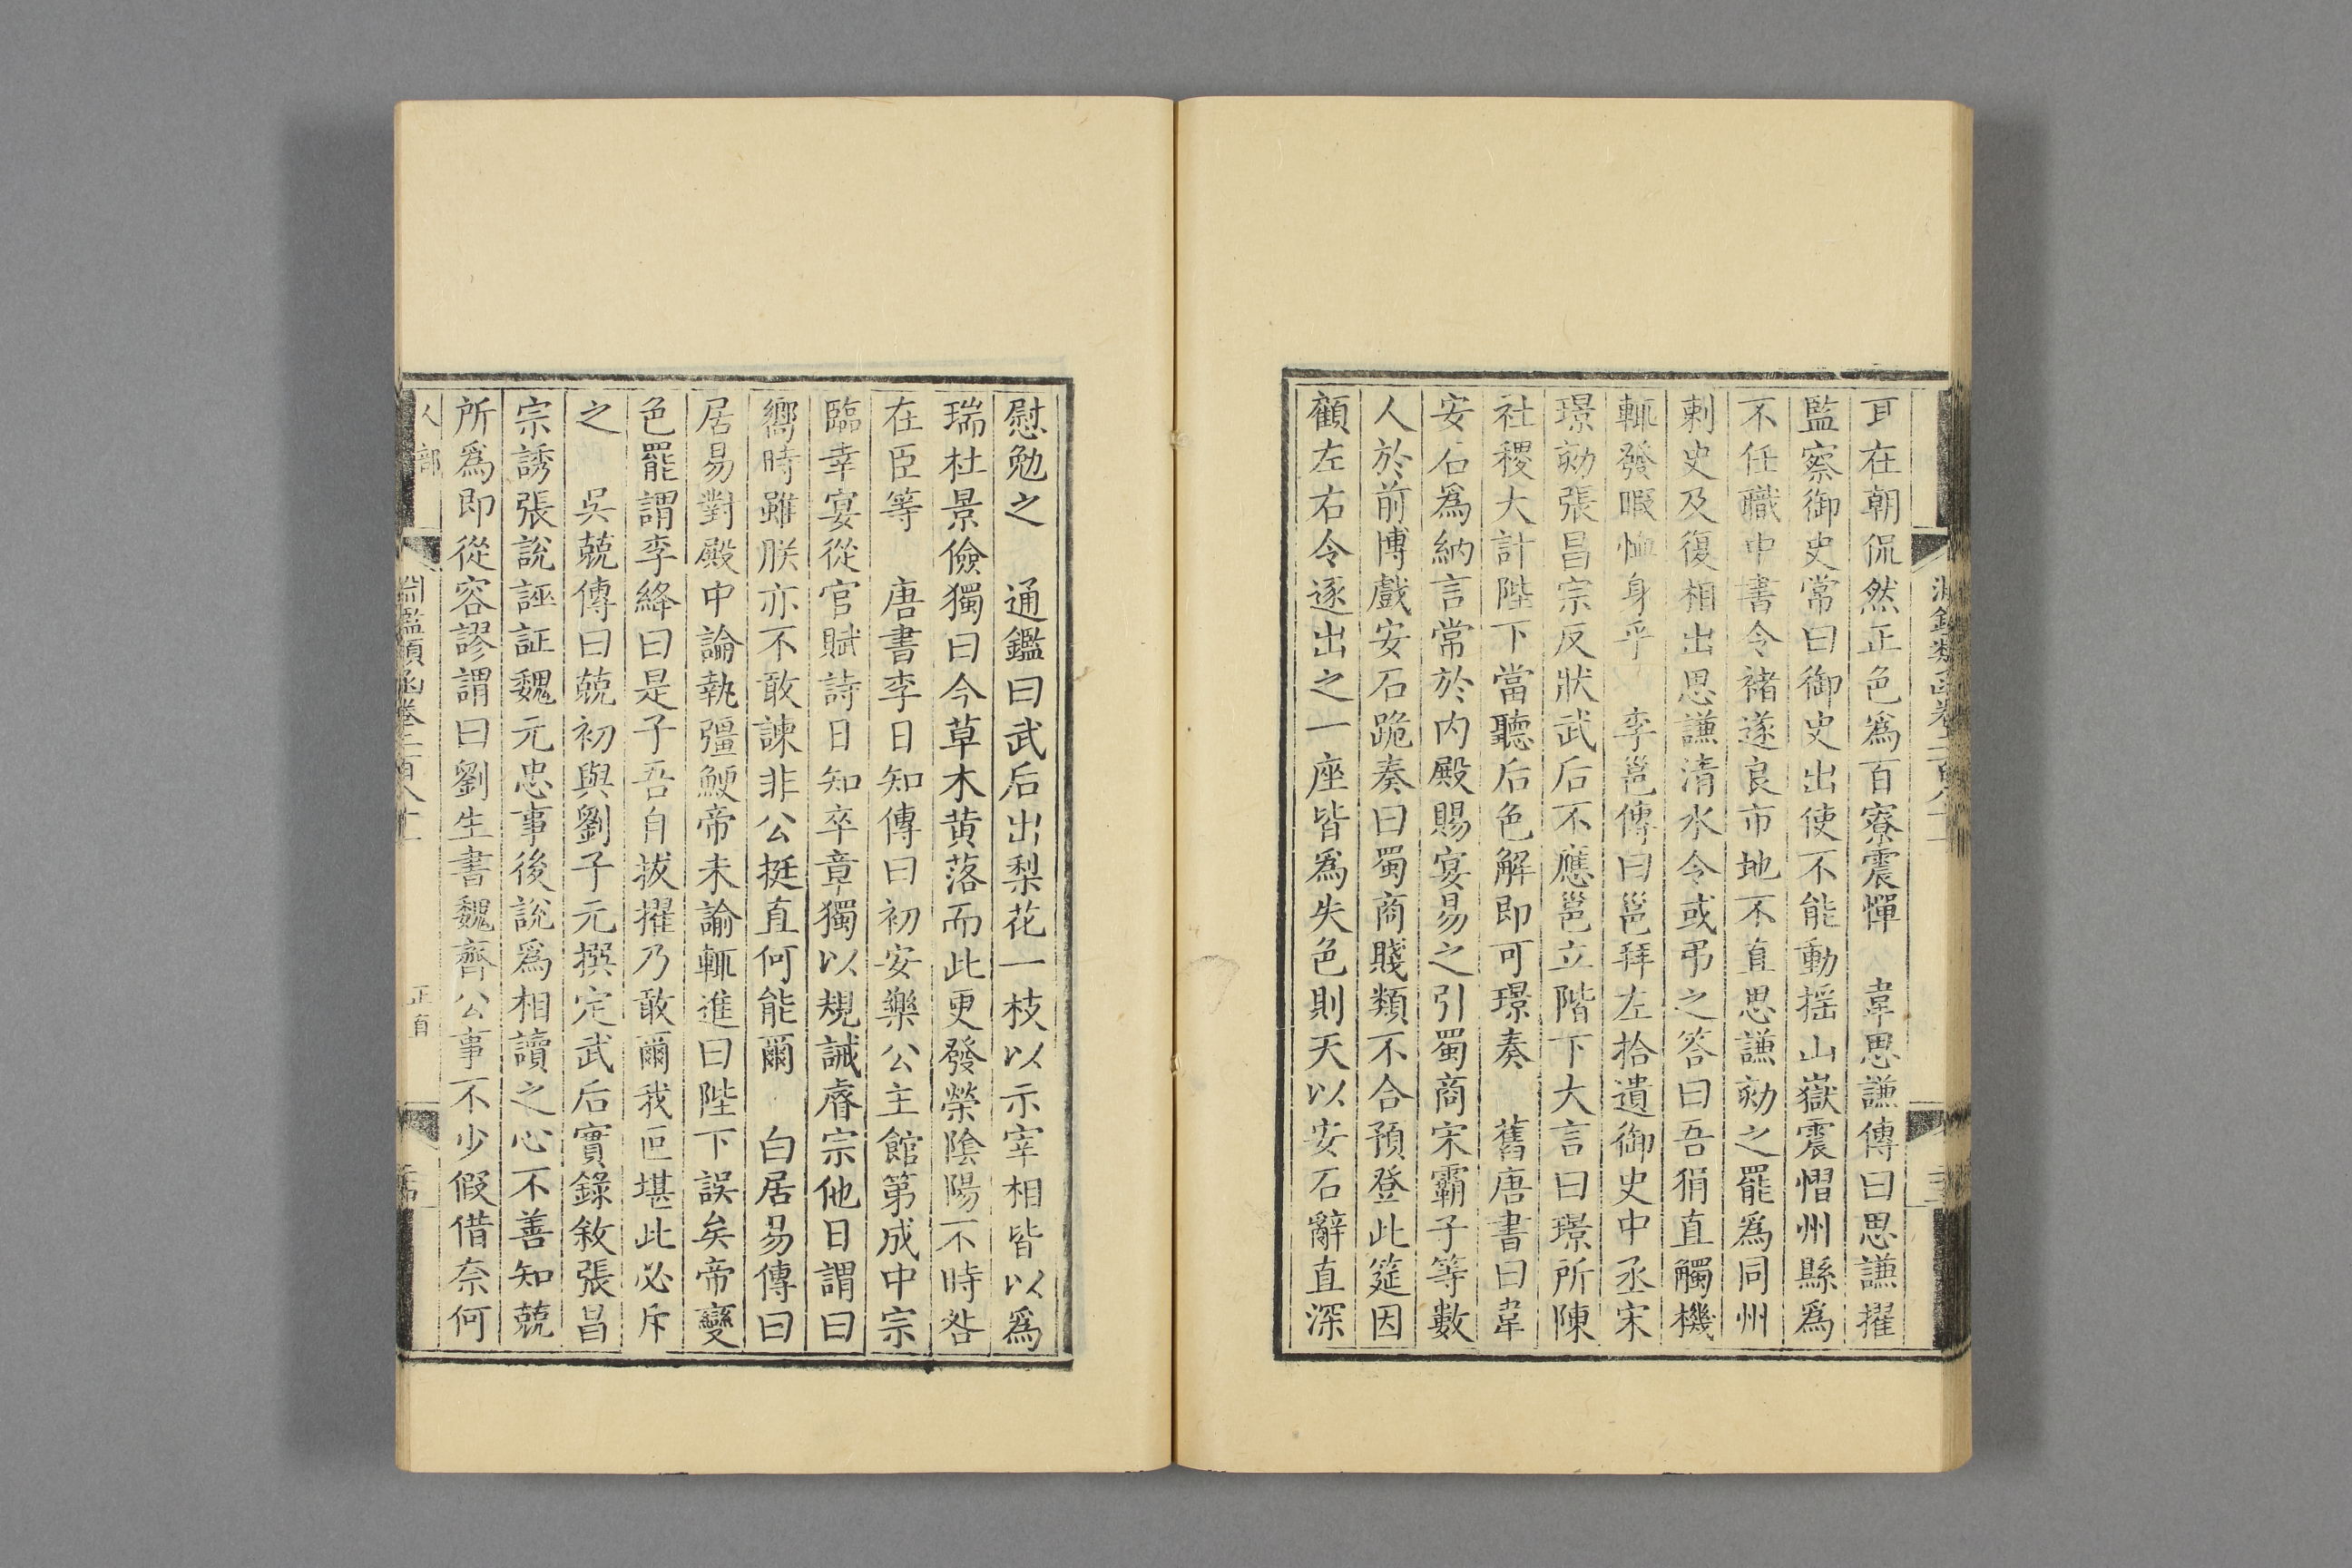 在朝侃然正色爲百寮震憚　韋思謙傳曰思謙擢
監察御史常曰御史出使不能動揺山嶽震慴州縣爲
不任職中書令禇遂良市地不直思謙劾之罷爲同州
剌史及復相出思謙清水令或弔之答曰吾狷直觸機
輒發暇恤身乎　李邕傳曰邕拜左拾遺御史中丞宋
璟劾張昌宗反狀武后不應邕立階下大言曰璟所陳
社稷大計陛下當聽后色解即可璟奏　舊唐書曰韋
安石爲納言常於内殿賜宴易之引蜀商宋霸子等數
人於前博戲安石跪奏曰蜀商賤類不合預登此筵因
顧左右令逐出之一座皆爲失色則天以安石辭直深
慰勉之　通鑑曰武后出梨花一枝以示宰相皆以爲
瑞杜景儉獨曰今草木黄落而此更發榮陰陽不時咎
在臣等　唐書李日知傳曰初安樂公主館第成中宗
臨幸宴從官賦詩日知卒章獨以規誡睿宗他日謂曰
嚮時雖朕亦不敢諫非公挺直何能爾　白居易傳曰
居易對殿中論執彊鯁帝未諭輒進曰陛下誤矣帝變
色罷謂李絳曰是子吾自拔擢乃敢爾我叵堪此必斥
之　吳兢傳曰兢初與劉子元撰定武后實錄敘張昌
宗誘張說誣証魏元忠事後說爲相讀之心不善知兢
所爲即從容謬謂曰劉生書魏齊公事不少假借奈何
人部　淵鑑類函卷二百八十二　正直